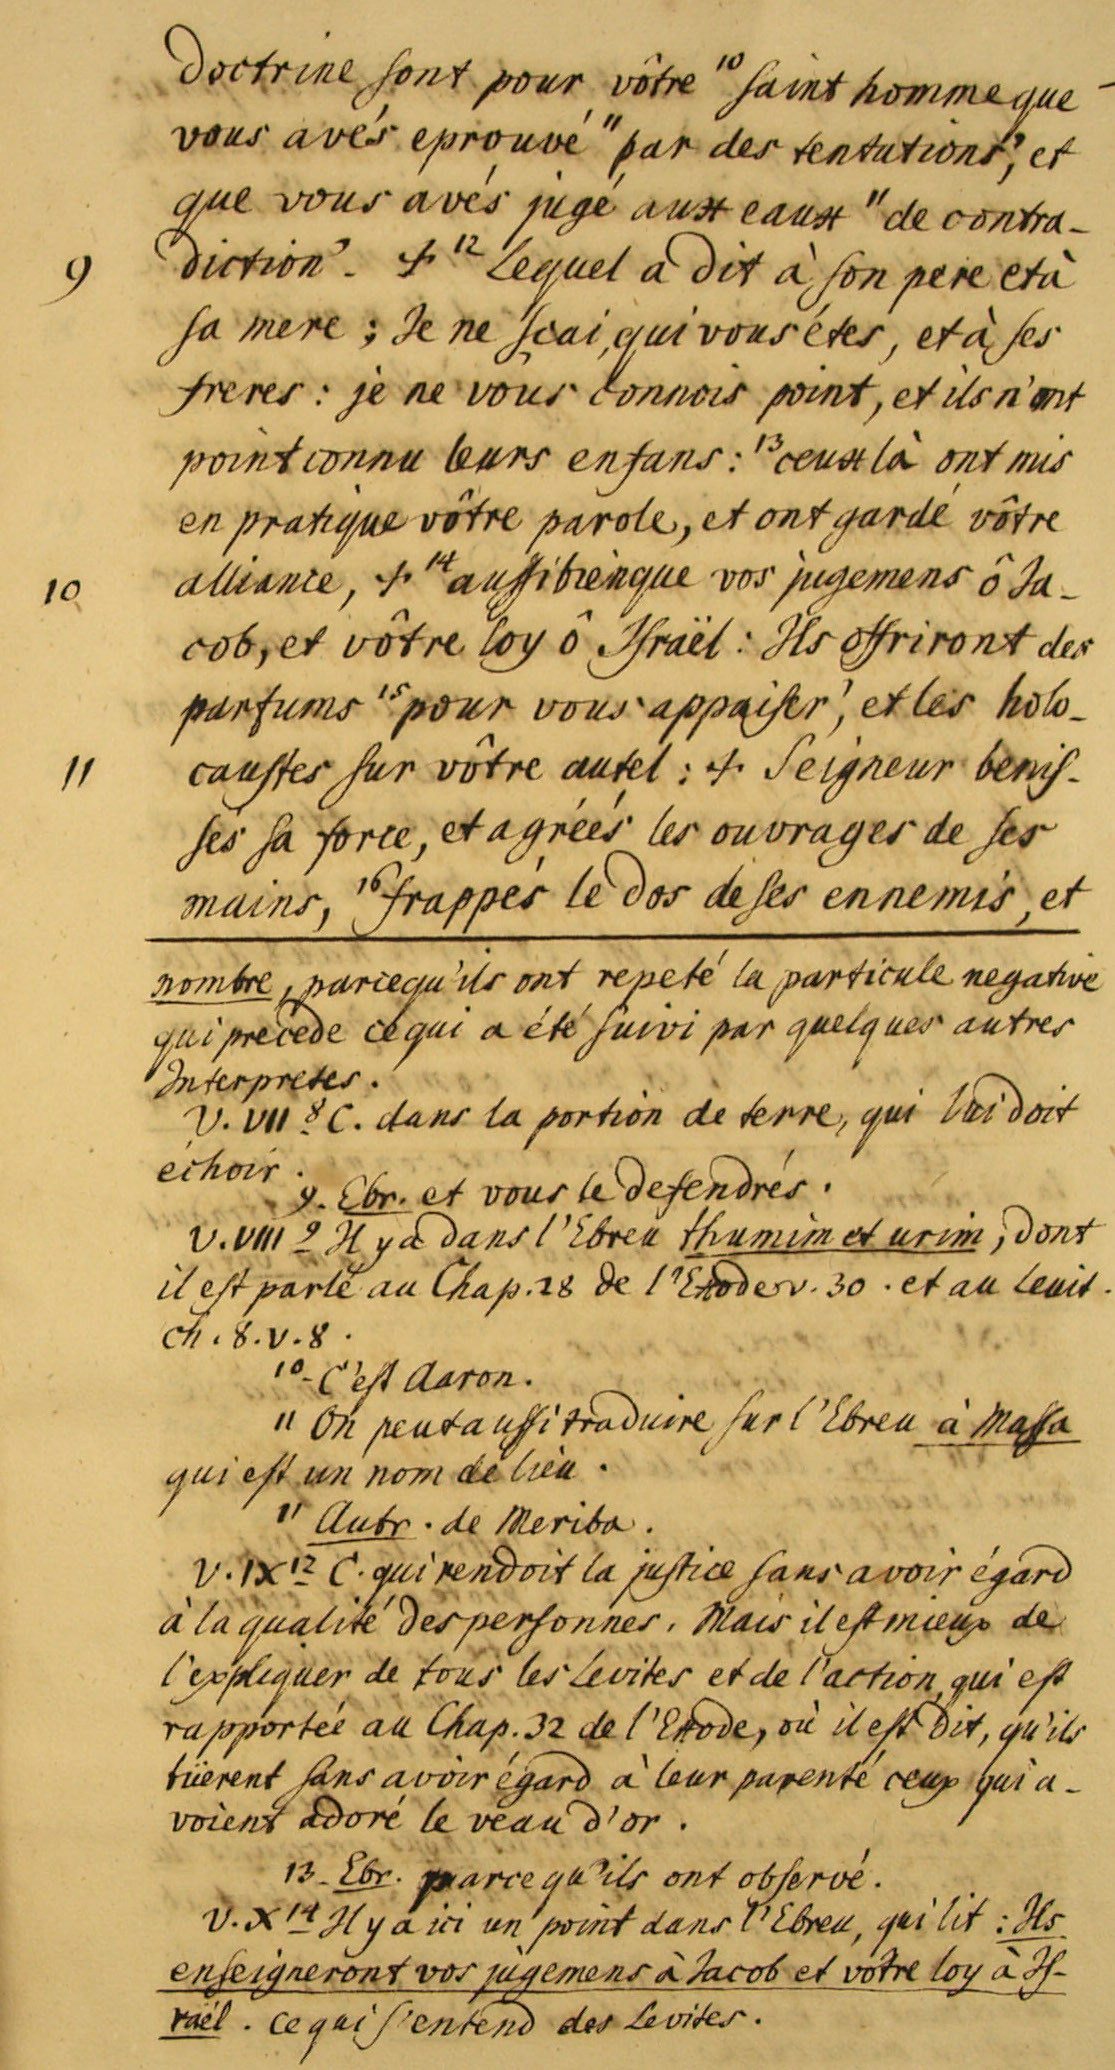 doctrine sont pour vôtre ¹⁰ saint homme que
vous avés eprouvé ¹¹ par des tentations’, et
que vous avés jugé aux eaux ¹¹ de contra-
9 diction’. + ¹² Lequel a dit à son pere et à
sa mere ; Je ne sçai, qui vous étes, et à ses
freres : je ne vous connois point, et ils n'ont
point connu leurs enfans : ¹³ ceux là ont mis
en pratique vôtre parole, et ont gardé vôtre
10 alliance, + ¹⁴ aussibienque vos jugemens ô Ja-
cob, et vôtre loy ô Israël : Ils offriront des
parfums ¹⁵ pour vous appaiser’, et les holo-
11 caustes sur vôtre autel : + Seigneur benis-
sés sa force, et agréés les ouvrages de ses
mains, ¹⁶ frappés le dos de ses ennemis, et
nombre, parcequ'ils ont repeté la particule negative
qui precede ce qui a été suivi par quelques autres
Interpretes.
V. VII ⁸ C. dans la portion de terre, qui lui doit
echoir.
9. Ebr. et vous le defendrés.
V. VIII ⁹ Il y a dans l'Ebreu thumim et urim, dont
il est parlé au Chap. 28 de l'Exode v. 30. et au Levit.
ch. 8. v. 8.
¹⁰ C'est Aaron.
¹¹ On peut aussi traduire sur l'Ebreu à Massa
qui est un nom de lieu.
¹¹ Autr. de Meriba.
V. IX ¹² C. qui rendoit la justice sans avoir égard
à la qualité des personnes. Mais il est mieux de
l'expliquer de tous les Levites et de l'action, qui est
rapportée au Chap. 32 de l'Exode, où il est dit, qu'ils
tüerent sans avoir égard à leur parenté ceux qui a-
voient adoré le veau d'or.
13. Ebr. parcequ'ils ont observé.
V. X ¹⁴ Il y a ici un point dans l'Ebreu, qui lit : Ils
enseigneront vos jugemens à Jacob et vôtre loy à Is-
raël. ce qui s'entend des Levites.